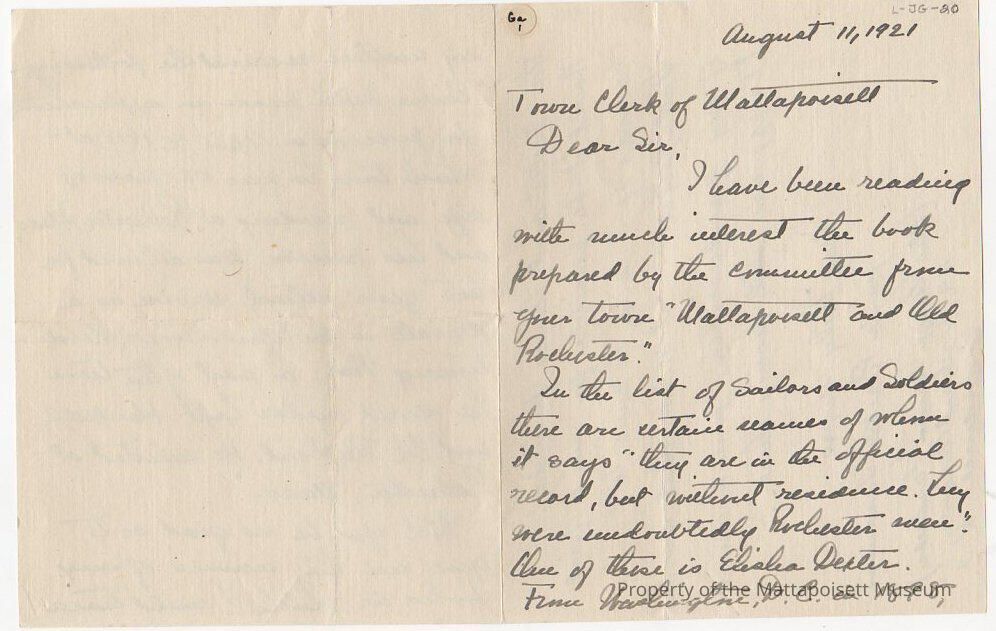 L-JG-20
Ga
1
August 11, 1921
Town Clerk of Mattapoisett
Dear Sir,
I have been reading
with much interest the book
prepared by the committee from
your town "Mattapoisett and Old
Rochester."
In the list of Sailors and Soldiers
there are certain names of whom
it says "they are in the official
record, but without residence. They
were undoubtedly Rochester men".
One of these is Elisha Dexter.
From Washington, D.C.
Property of the Mattapoisett Museum